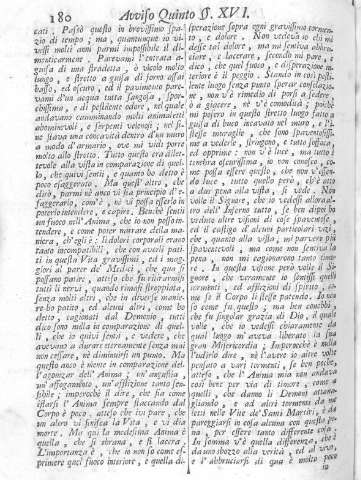 180 Avviso Quinto §. XVI.
cati. Passò questo in brevissimo spa-
zio di tempo; ma, quantunque io vi-
vessi molti anni parmi impossibile il di-
menticarmene. Parevami l'entrata a
guisa di una stradetta, ò vicolo molto
lungo, e stretto a guisa di forno assai
basso, ed oscuro, ed il pavimento pare-
vami d'un acqua tutta fangosa, spor-
chissima, e di pestilente odore, nel quale
andavano camminando molti animaletti
abbominevoli, e serpenti velenosi; nel fi-
ne stava una concavità dentro d'un muro
a modo d'armario, ove mi vidi porre
molto allo stretto. Tutto questo era dilet-
tevole alla vista in comparazione di quel-
lo, che quivi sentii, e quanto hò detto è
poco esaggerato. Ma quest'altro, che
dirò, parmi nè anco vi sia principio d'e-
saggerarlo, com'è, nè vi possa essere in
poterlo intendere, e capire. Sentii
un fuoco nell'Anima, che io non posso in-
tendere, e come poter narrare della ma-
niera, ch'egli è: I dolori corporali erano
tanto incompatibili, che con averli pati-
ti in questa Vita gravissimi, ed i mag-
giori al parere de' Medici, che quà si
possano patire, atteso che fu ritirarmisi
tutti li nervi, quando rimasi stroppiata,
senza molti altri, che in diverse manie-
re hò patito, ed anche alcuni, come hò
detto, cagionati dal Demonio, tutti
dico sono nulla in comparazione di quel-
li, che io quivi sentii, e vedere, che
avevano a durare eternamente senza mai
non cessare, nè diminuirsi un punto. Ma
questo anco è niente in comparazione del-
l'agonizar dell'Anima; un'angustia,
un'affogamento, un'afflizione tanto sen-
sibile, imperochè il dire, che sia come
estrarsi l'Anima sempre staccando dal
Corpo è poco. atteso che ivi pare, che
un altro vi finisca la Vita, e vi dia
morte. Ma quì la medesima Anima è
quella, che si sbrana, e si lacera.
L'importanza è, che io non sò come es-
primere quel fuoco interiore, e quella di-
sperazione sopra ogni gravissimo tormen-
to, e dolore. Non vedevo io chi mi
desse tal dolore, ma mi sentiva abbru-
ciare, e lacerare, secondo mi pare, e
dico, che quel fuoco, e disperazione in-
teriore è il peggio. Stando in così pesti-
lente luogo senza punto sperar consolazio-
ne, non v'è rimedio di porsi a sedere,
ò a giacere, nè v'è comodità; poichè
mi posero in questo stretto luogo fatto a
guisa di buco incavato nel muro, e l'i-
stesse muraglie, che sono spaventosissi-
me a vederle, stragono, e tutto soffoca,
ed opprime: non v'è luce, ma tutto è
tenebra oscurissima, io non conosco, co-
me possa essere questo, che non v'essen-
do luce, tutto quello però, ch'è atto
a dar pena alla vista, si vede. Non
volle il Signore, che io vedessi allora al-
tro dell'Inferno tutto, se ben dipoi hò
veduto altre visioni di cose spaventose,
ed il castigo d'alcuni particolari vizj,
che, quanto alla vista, mi parvero più
spaventevoli, ma come non sentivo la
pena, non mi cagionarono tanto timo-
re. In questa visione però volle il Si-
gnore, che veramente io sentissi quei
tormenti, ed afflizioni di spirito, co-
me se il Corpo li stesse patendo. Io non
sò come fu questo; ma ben conobbi,
che fu singolar grazia di Dio, il qual
volle, che io vedessi chiaramente da
qual luogo m'aveva liberato la sua
gran Misericordia; Imperochè è nulla
l'udirlo dire, nè l'avere io altre volte
pensato a varj tormenti, se bene poco,
atteso, che l'Anima mia non andava
così bene per via di timore, come a
quelli, che danno li Demonj attana-
gliando, e ad altri tormenti da me
letti nelle Vite de' Santi Martiri, è da
pareggiarsi in cosa alcuna con questa
pena, imperochè questa è un'altra cosa.
In somma v'è quella differenza, che è
da uno sbozzo alla verità, ed al vivo,
e l'abbruciarsi di quà è molto poco
in